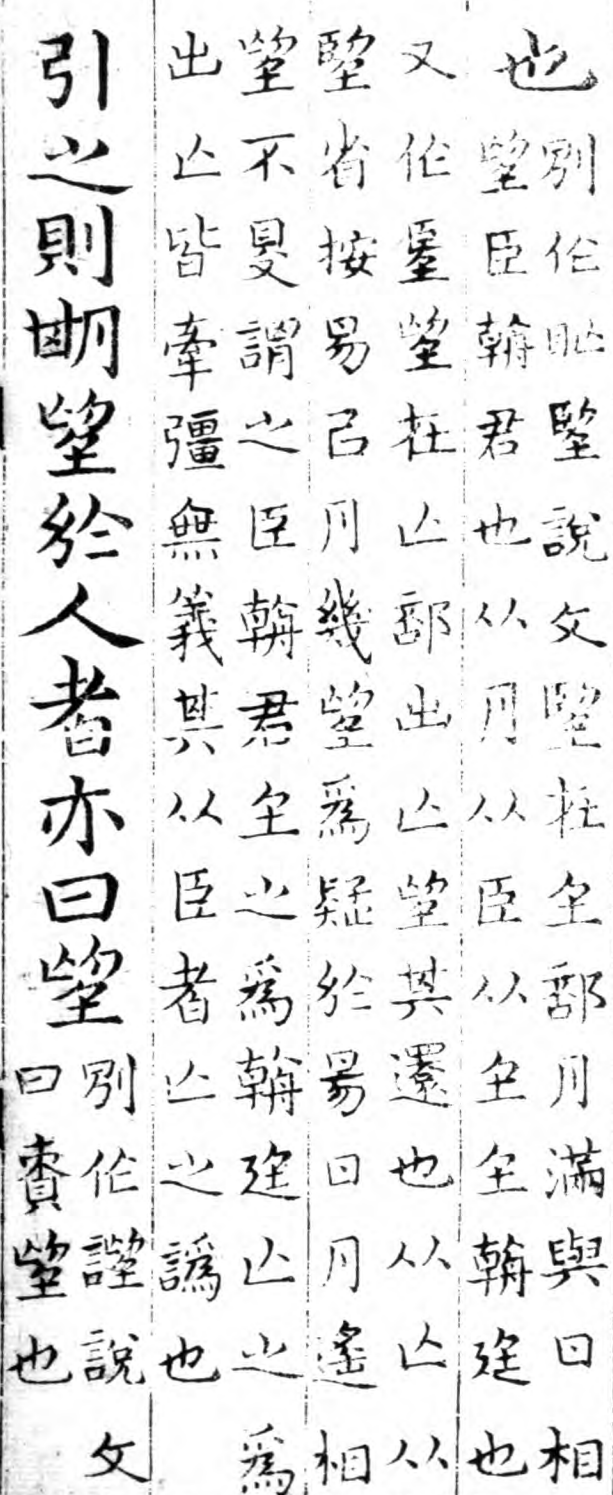 也
別作朢說文朢在𡈼部月滿與日相
朢臣朝君也从月从臣从𡈼𡈼朝廷也
又作望在亾部出亾望其還也从亾从
朢省按易己月幾望爲疑於昜日月遙相
望不㝵謂之臣朝君𡈼之爲朝廷亾之爲
出亾皆牽彊無義其从臣者亾之譌也
引之則期望於人者亦曰望
別作說文
曰責望也